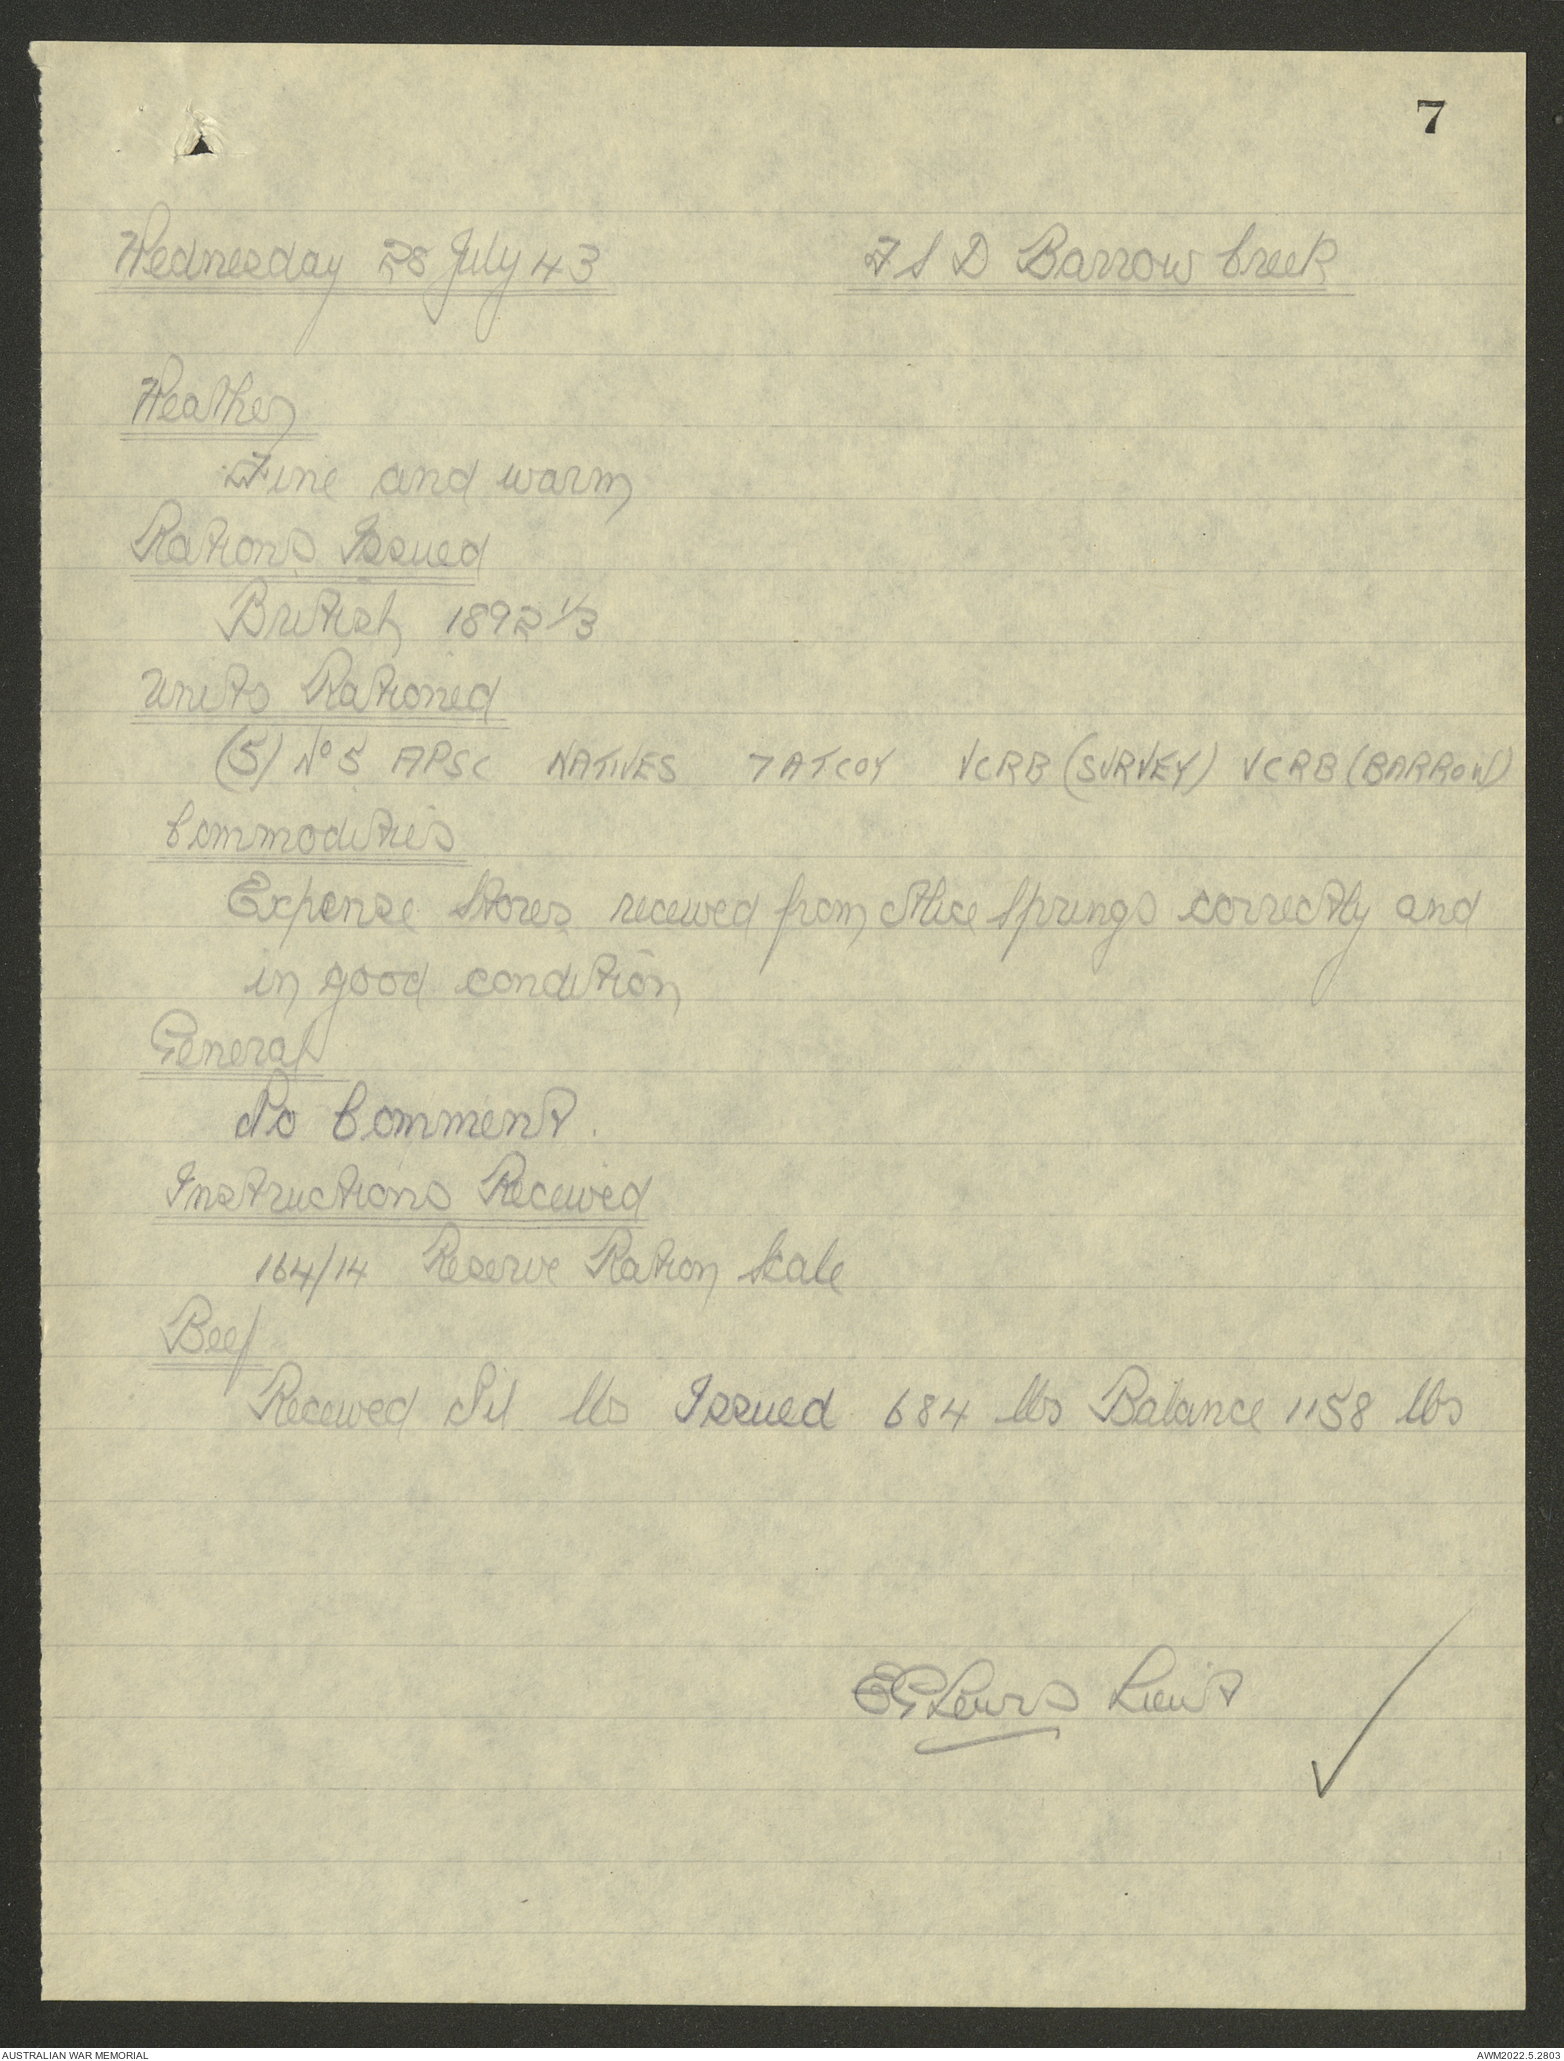 7
Wednesday 28 July 43 F S D Barrow Creek
Weather
Fine and warm
Rations Issued
British 1892 1/3
Units Rationed
(5) No 5 APSC NATIVES 7 ATCOY VCRB (SURVEY) VCRB (BARROW)
Commodities
Expense Stores received from Alice Springs correctly and
in good condition
General
No Comment.
Instructions Received
164/14 Reserve Ration Scale
Beef
Received Nil lbs Issued 684 lbs Balance 1158 lbs
EG Lewis Lieut
AUSTRALIAN WAR MEMORIAL AWM2022.5.2803